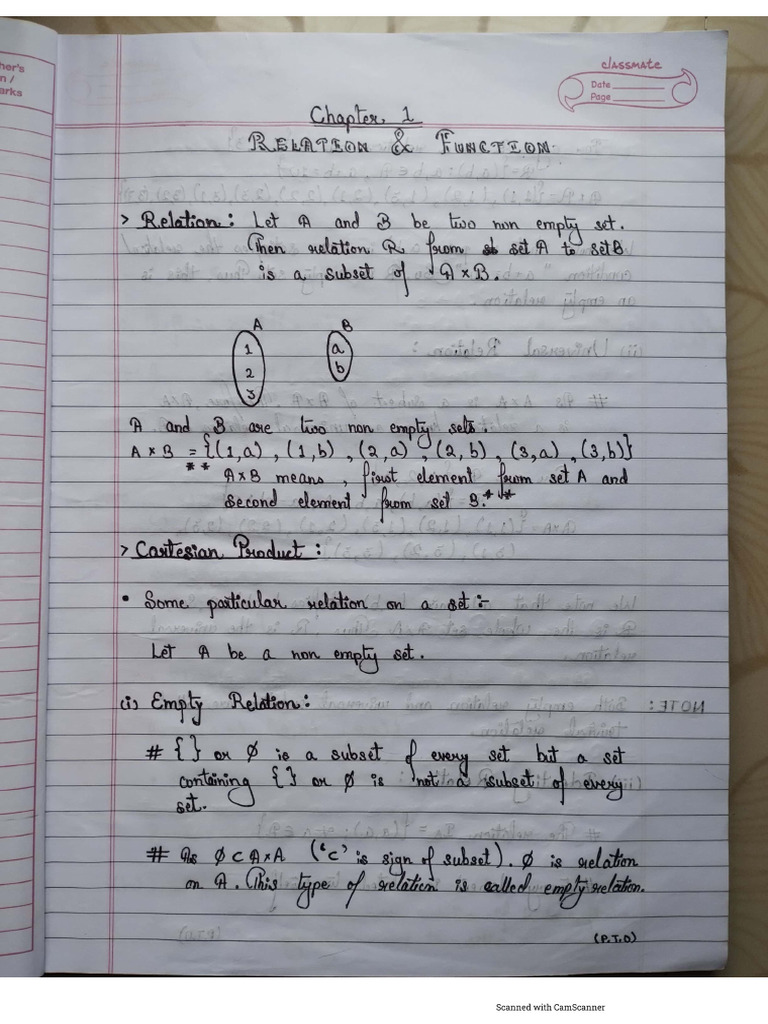 her's
n /
arks
classmate
Date
Page
Chapter. 1
RELATION & FUNCTION
> Relation: Let A and B be two non empty set.
Then relation R from set A to set B
is a subset of A×B.
A B
1 a
2 b
3
A and B are two non empty sets:
A×B = {(1,a), (1,b), (2,a), (2,b), (3,a), (3,b)}
** A×B means, first element from set A and
second element from set B.**
> Cartesian Product:
• Some particular relation on a set:-
Let A be a non empty set.
(i) Empty Relation:
# { } or ∅ is a subset of every set but a set
containing { } or ∅ is not a subset of every
set.
# As ∅ ⊂ A×A ('⊂' is sign of subset). ∅ is relation
on A. This type of relation is called empty relation.
(P.T.O)
Scanned with CamScanner